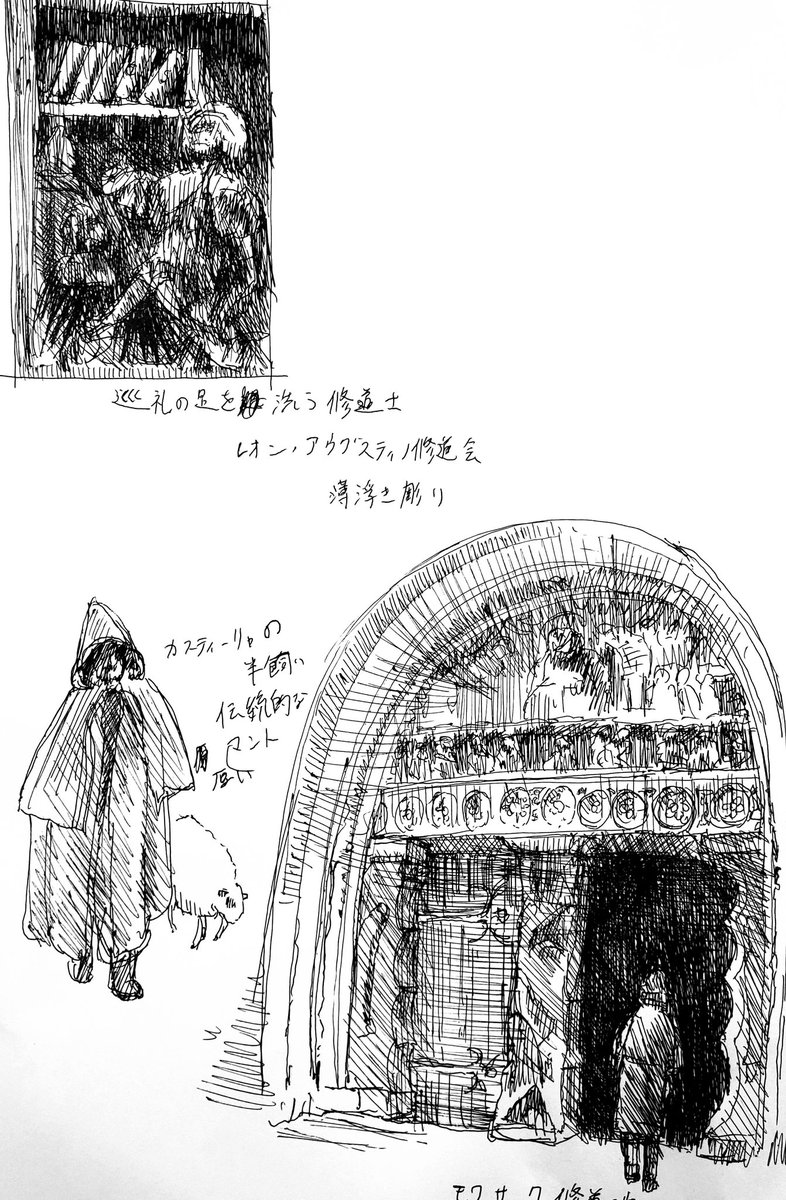 巡礼の足を洗う修道士
レオン・アウグスティノ修道会
薄浮き彫り
カスティーリャの
羊飼い
伝統的な
マント
モワサック修道